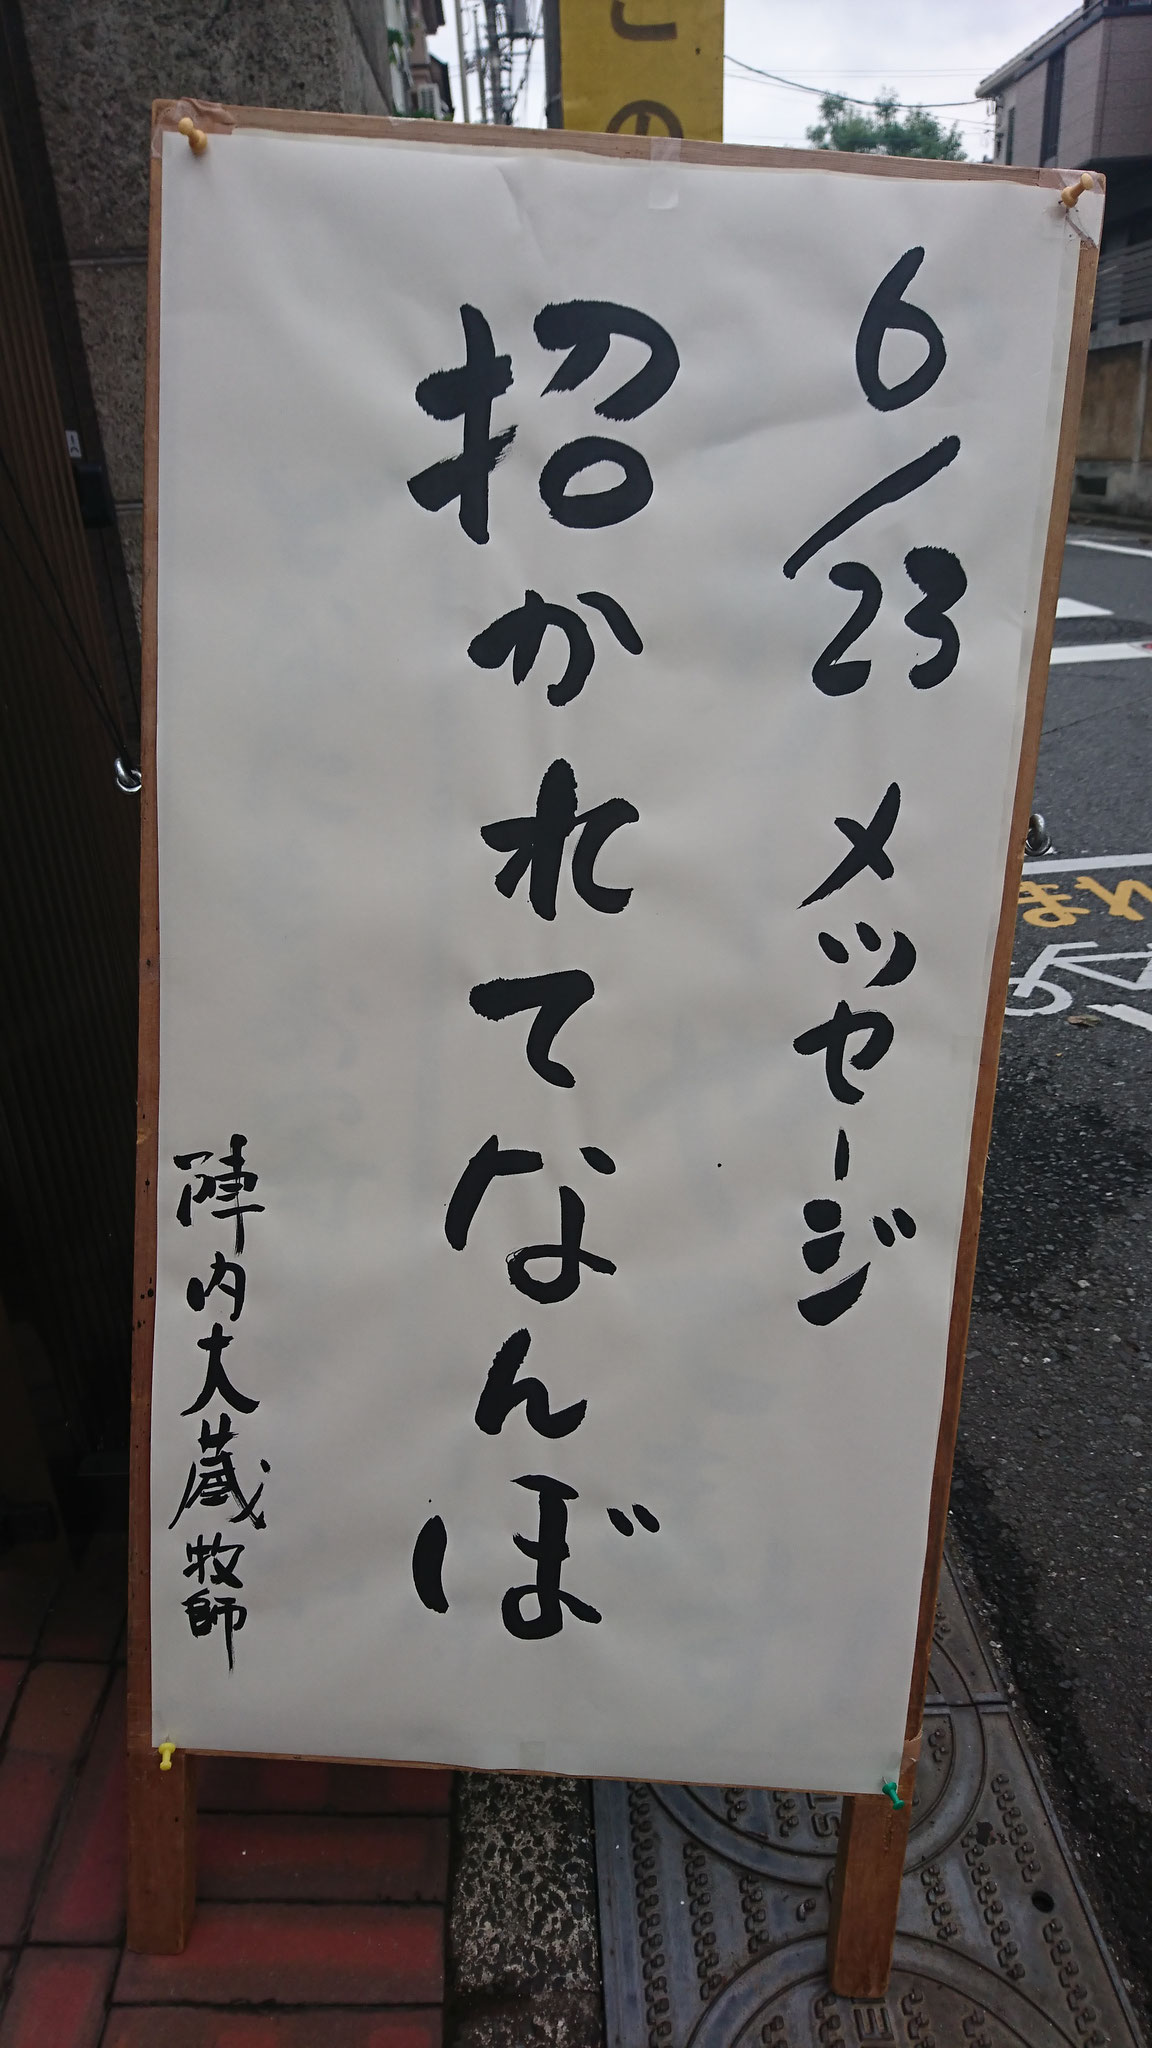 6/23 メッセージ
招かれてなんぼ
陣内大蔵牧師
この
まれ